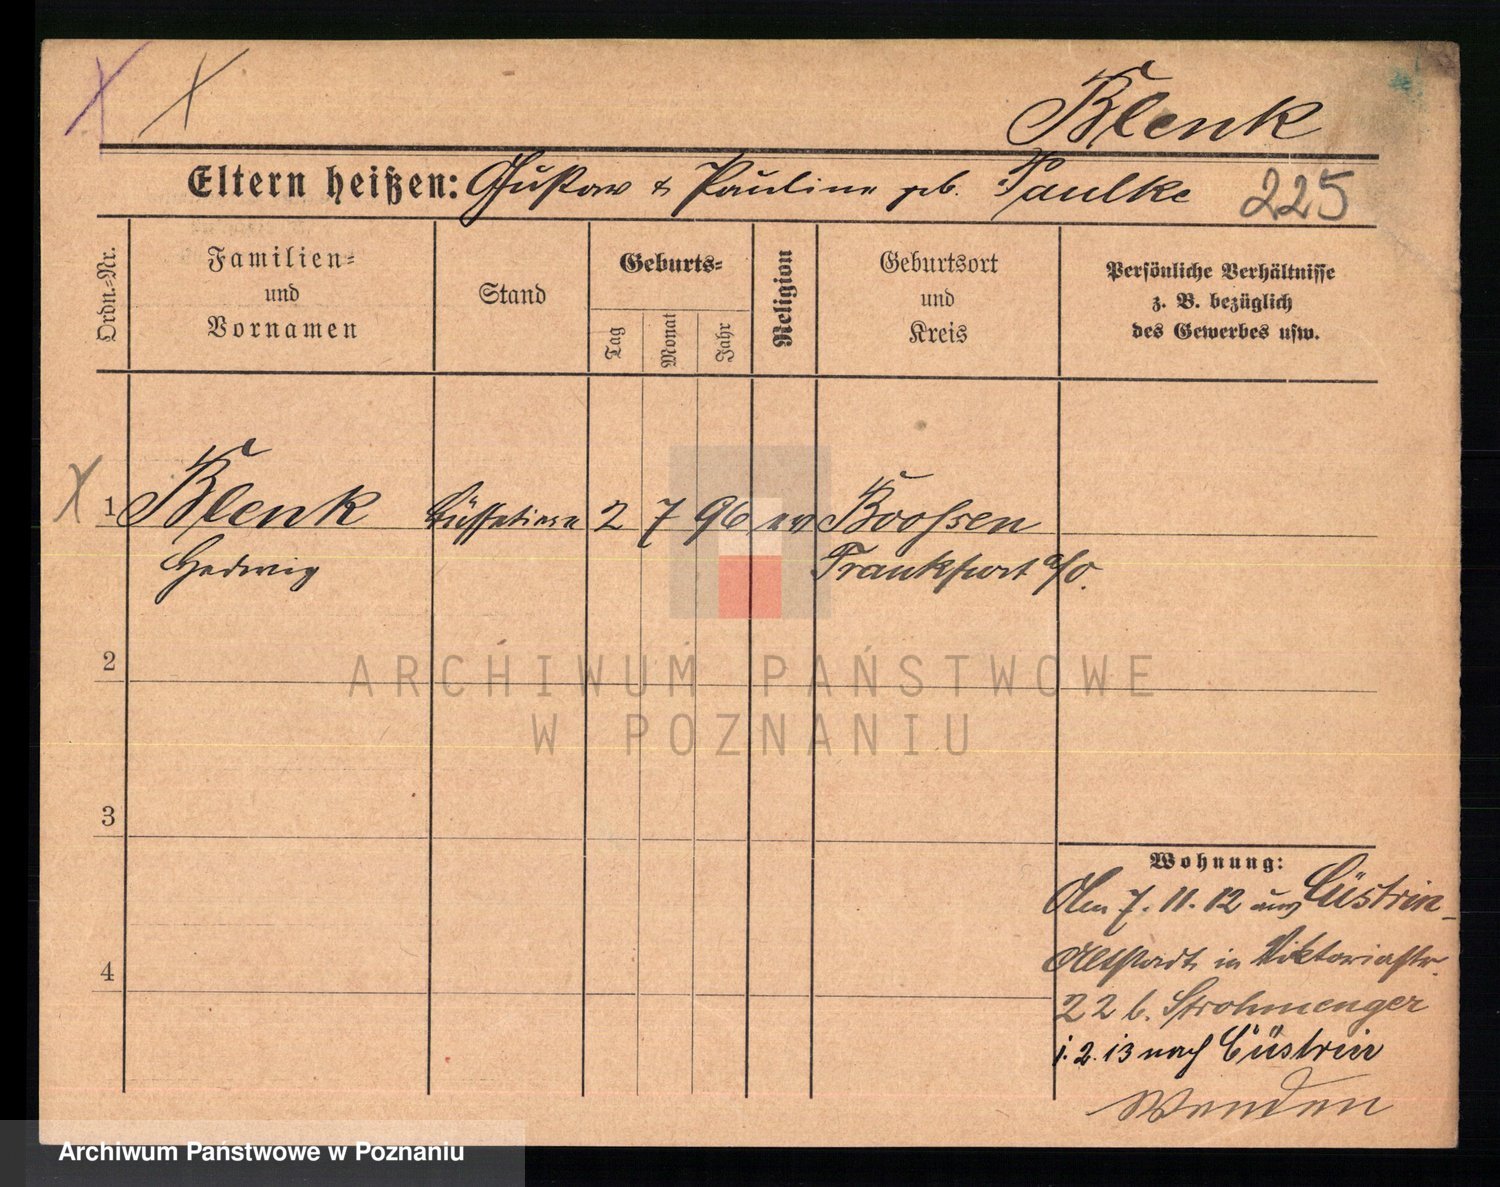 Blenk
Eltern heißen: Gustav & Pauline geb. Paulke 225
Ordn.-Nr.
Familien-
und
Vornamen
Stand
Geburts-
Tag
Monat
Jahr
Religion
Geburtsort
und
Kreis
Persönliche Verhältnisse
z. B. bezüglich
des Gewerbes usw.
1 Blenk Büffetiere 2 7 96 ev Boossen
Hedwig Frankfurt a/O.
2
ARCHIWUM PAŃSTWOWE
W POZNANIU
3
4
Wohnung:
Am 7. 11. 12 aus Cüstrin-
Altstadt in Viktoriastr.
22 b. Strohmenger
1. 2. 13 nach Cüstrin
Wenden
Archiwum Państwowe w Poznaniu